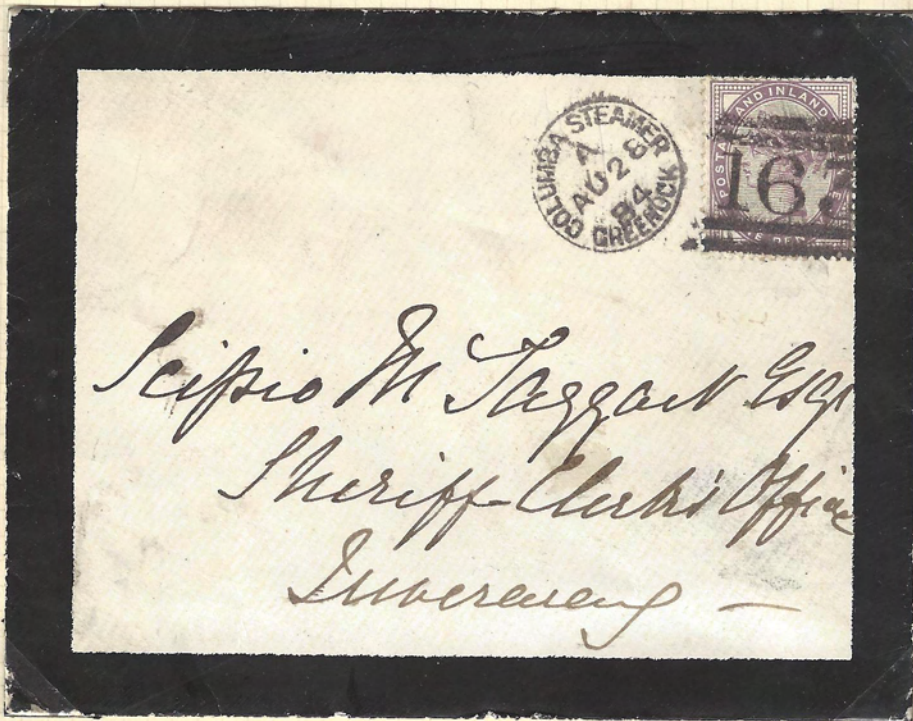 COLUMBA STEAMER
A
AU 28
84
GREENOCK
POSTA AND INLAND
167
Scipio McTaggart Esqr
Sheriff-Clerk's Office
Inveraray